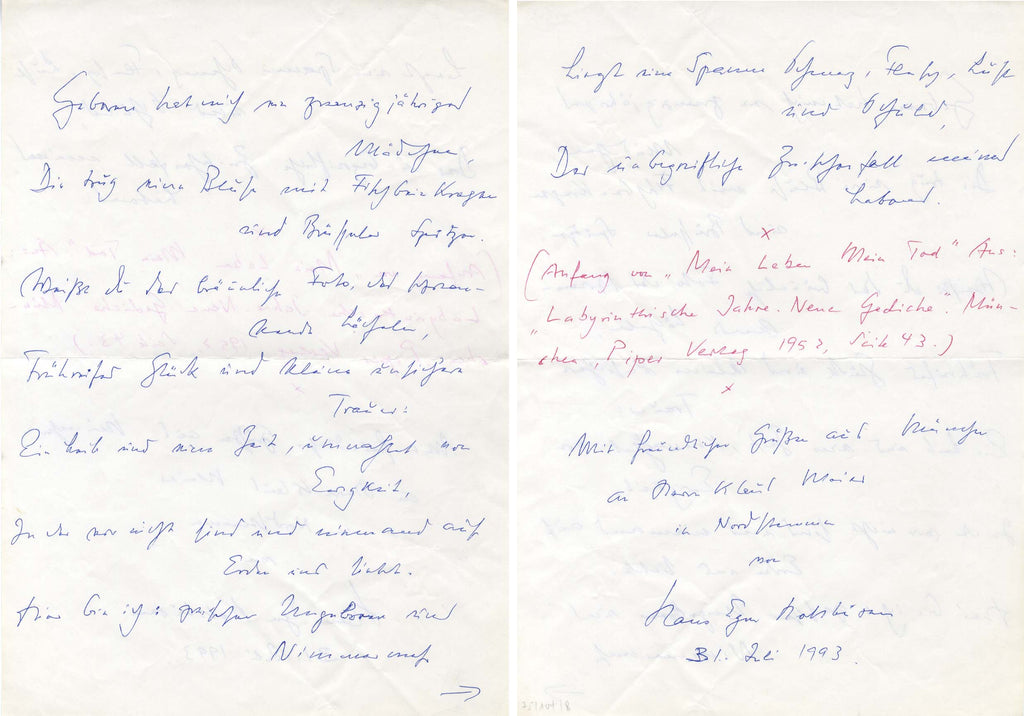 Geboren hat mich ein zwanzigjähriges
Mädchen
Die trug eine Bluse mit Fischbein Kragen
und Brüsseler Spitzen.
Weißt du das bräunliche Foto, das schwan-
kende Lächeln,
Frühreifes Glück und kleine unsichere
Trauer:
Ein Leib und eine Zeit, umnachtet von
Ewigkeit,
In der wir nicht sind und niemand auf
Erden uns liebt.
Hier bin ich: zwischen Ungeboren und
Nimmermehr
→
Liegt eine Spanne Schmerz, Lust
und Schuld,
Der unbegreifliche Zwischenfall meines
Lebens.
x
(Anfang von „Mein Leben Mein Tod" Aus:
„Labyrinthische Jahre. Neue Gedichte". Mün-
chen, Piper Verlag 1952, Seite 43.)
x
Mit freundlichen Grüßen aus München
an Herrn Klaus Meier
in Nordstemmen
von
Hans Egon Holthusen
31. Juli 1993.